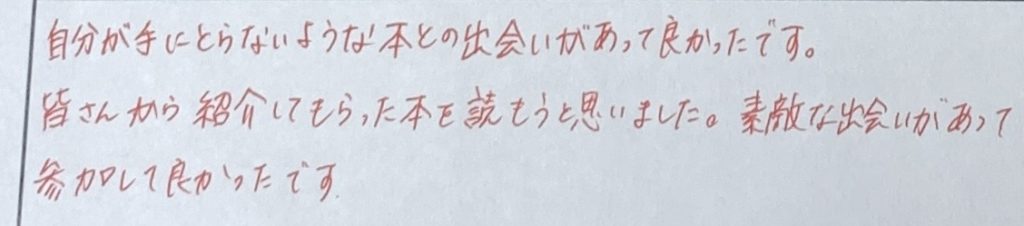 自分が手にとらないような本との出会いがあって良かったです。
皆さんから紹介してもらった本を読もうと思いました。素敵な出会いがあって
参加して良かったです